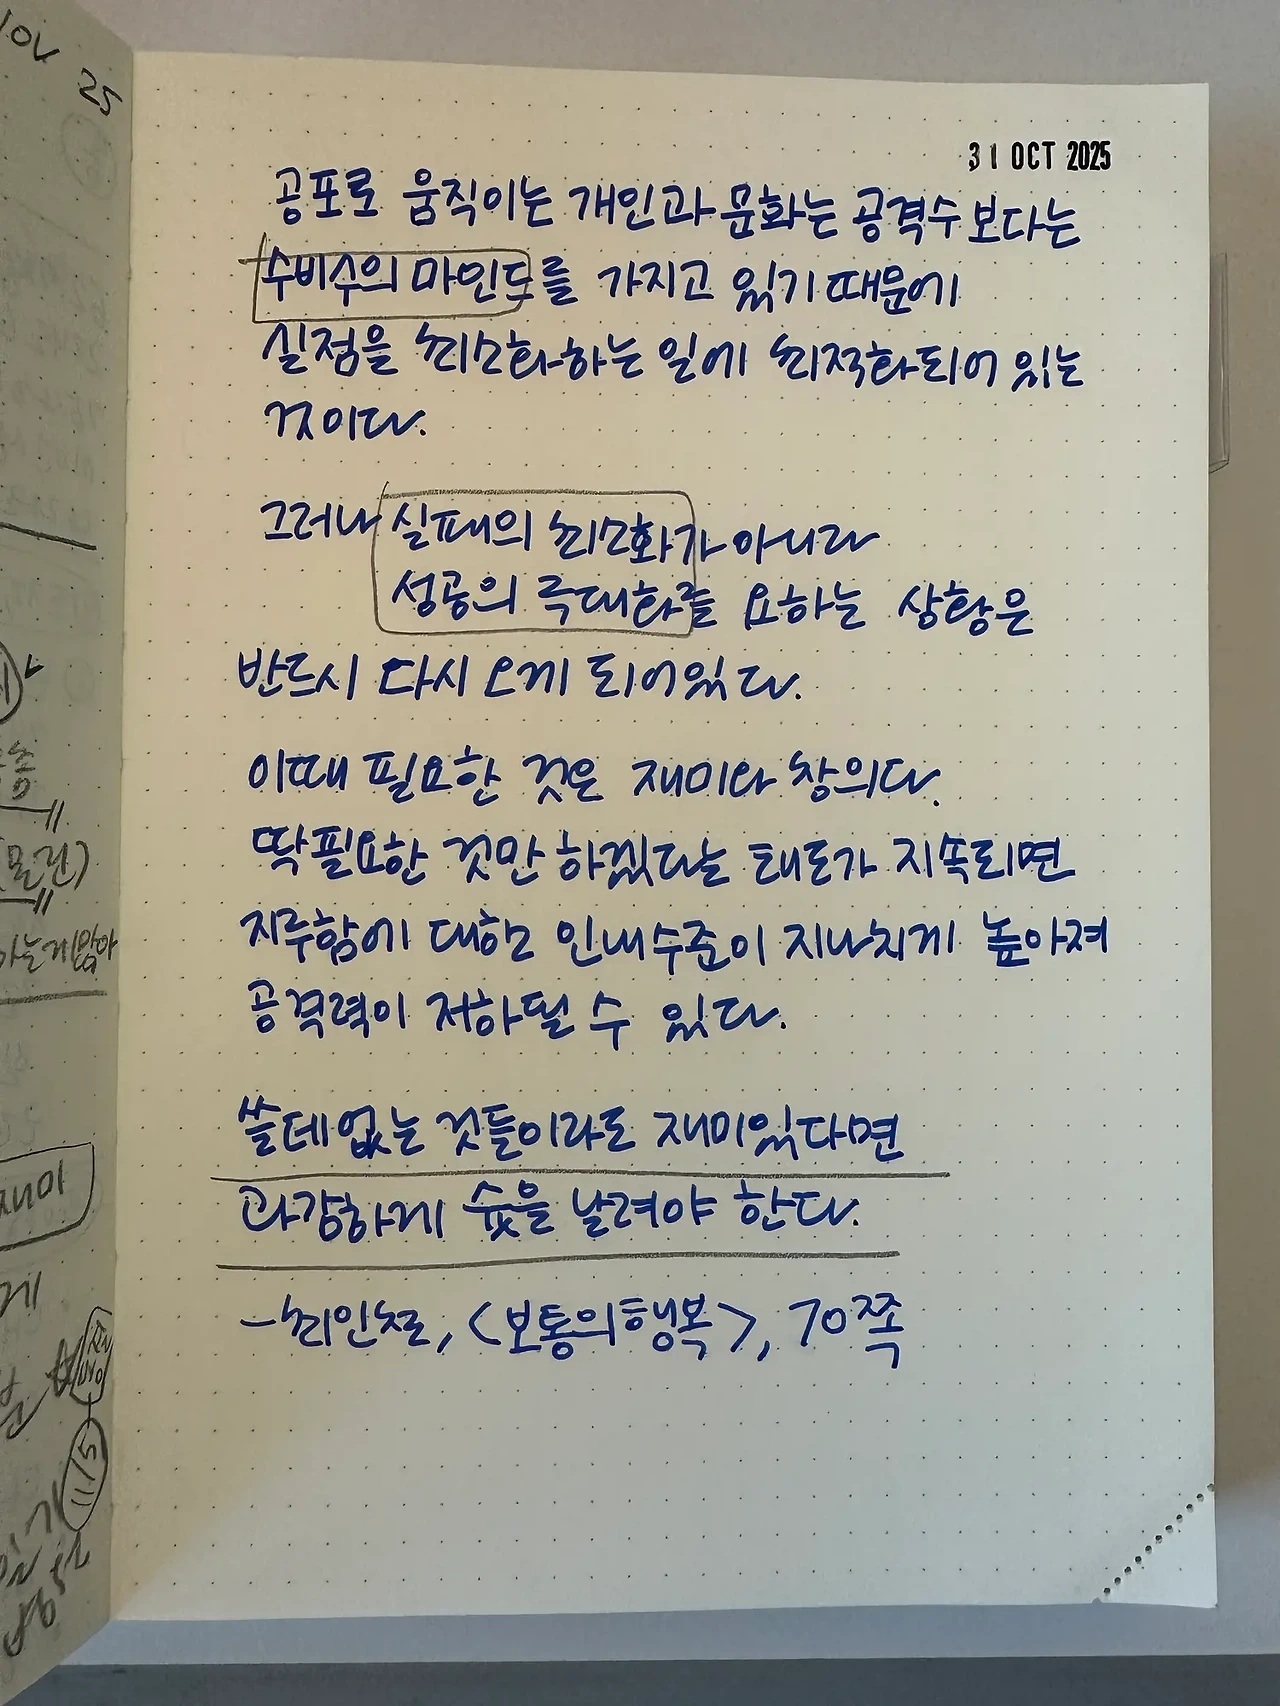 NOV 25
31 OCT 2025
공포로 움직이는 개인과 문화는 공격수보다는
수비수의 마인드를 가지고 있기 때문에
실점을 최소화하는 일에 최적화되어 있는
것이다.
그러나 실패의 최소화가 아니라
성공의 극대화를 요하는 상황은
반드시 다시 오게 되어있다.
이때 필요한 것은 재미와 창의다.
딱 필요한 것만 하겠다는 태도가 지속되면
지루함에 대한 인내수준이 지나치게 높아져
공격력이 저하될 수 있다.
쓸데없는 것들이라도 재미있다면
과감하게 슛을 날려야 한다.
-최인철, <보통의 행복>, 70쪽
물건)
하는게 맞아
재미
게
11/5